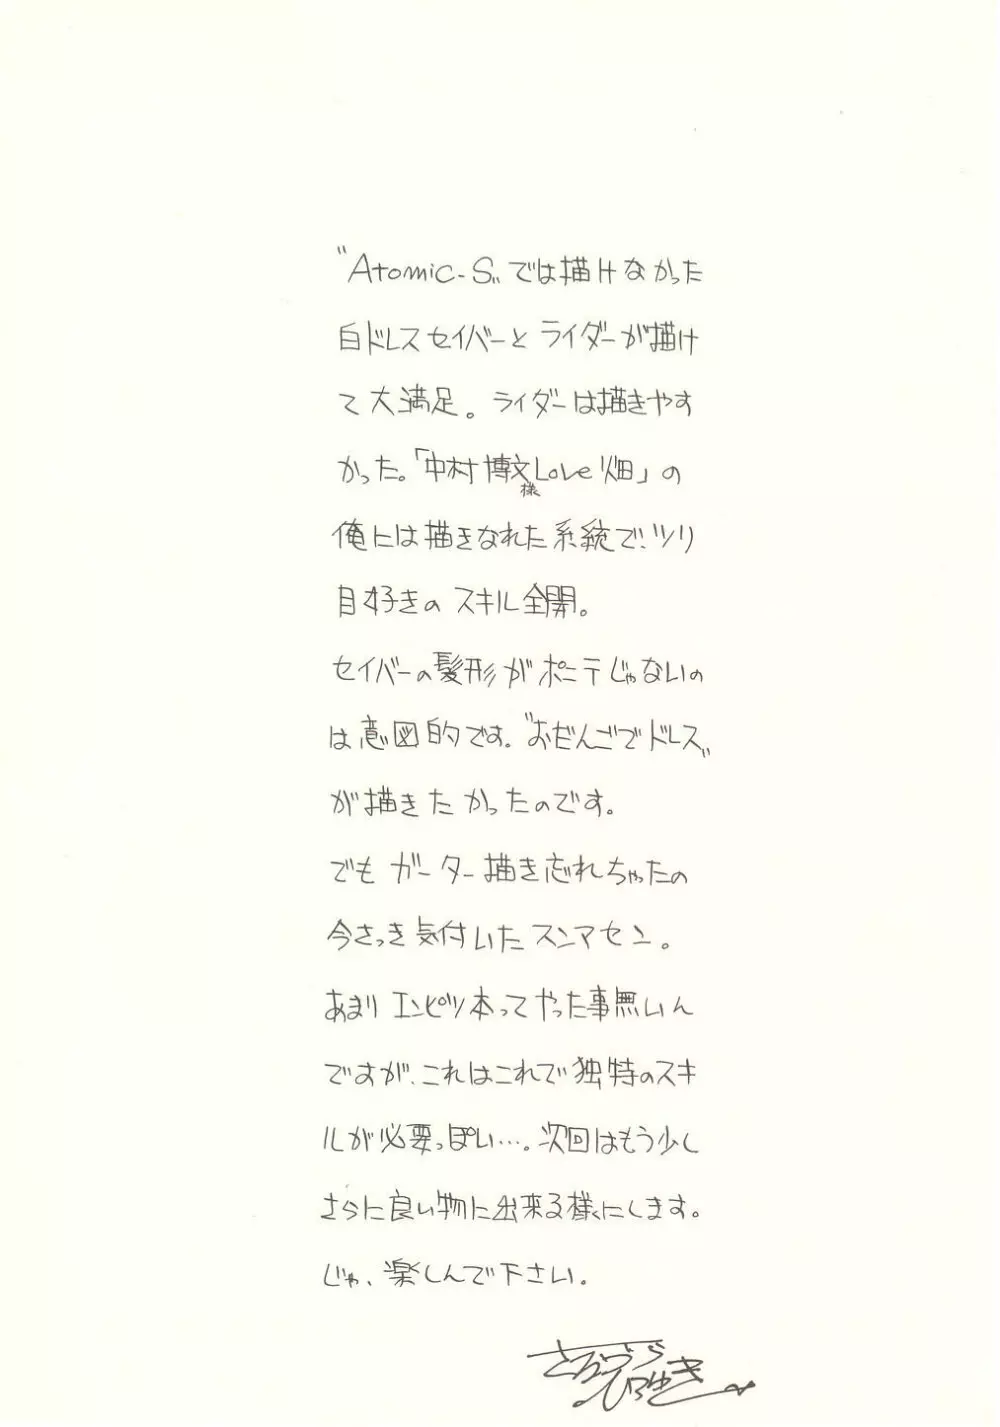 "Atomic-S"では描けなかった
白ドレスセイバーとライダーが描け
て大満足。ライダーは描きやす
かった。「中村博文様Love畑」の
俺には描きなれた系統で!ツリ
目好きのスキル全開。
セイバーの髪形がポニテじゃないの
は意図的です。"おだんごでドレス"
が描きたかったのです。
でもガーター描き忘れちゃたの
今さっき気付いたスンマセン。
あまりエンピツ本ってやった事無いん
ですが、これはこれで独特のスキ
ルが必要っぽい…。次回はもう少し
さらに良い物に出来る様にします。
じゃ、楽しんで下さい。